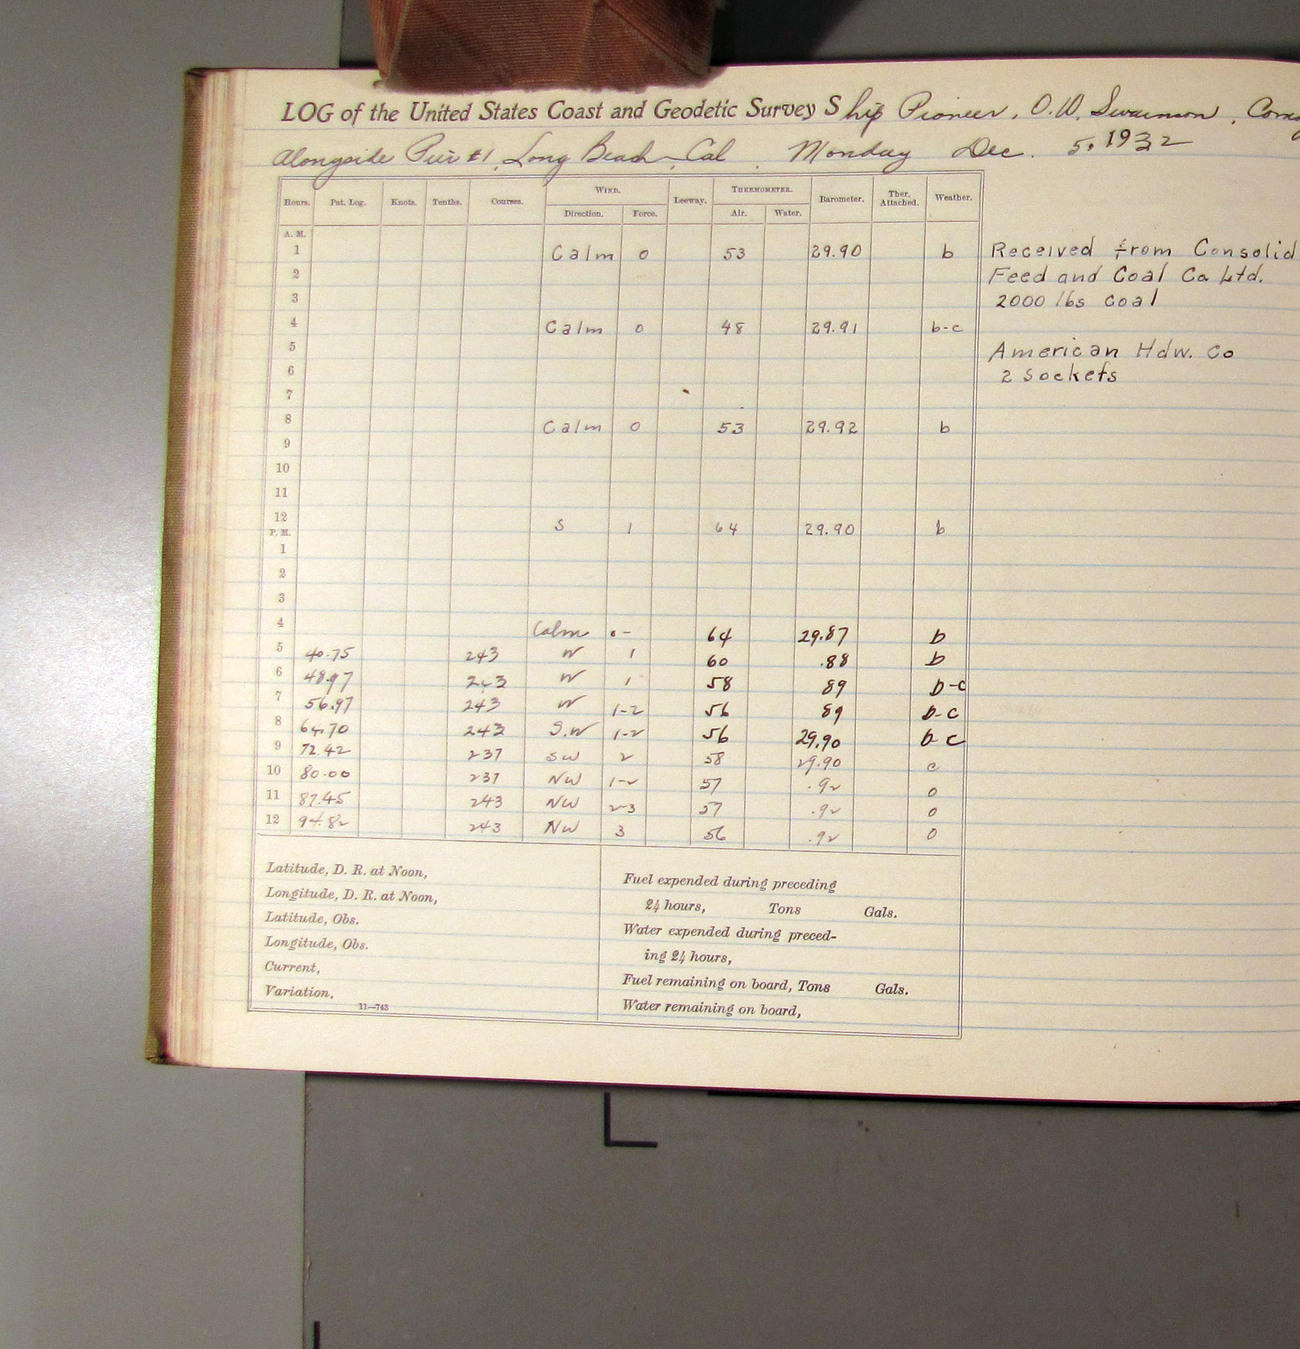 LOG of the United States Coast and Geodetic Survey Ship Pioneer, O.W. Swainson,
Alongside Pier #1, Long Beach, Cal. Monday Dec. 5, 1932
Hours. Pat. Log. Knots. Tenths. Courses. WIND. Direction. Force. Leeway. THERMOMETER. Air. Water. Barometer. Ther. Attached. Weather.
A. M.
1 Calm 0 53 29.90 b Received from Consolid
2 Feed and Coal Co Ltd.
3 2000 lbs coal
4 Calm 0 48 29.91 b-c
5 American Hdw. Co
6 2 Sockets
7
8 Calm 0 53 29.92 b
9
10
11
12 S 1 64 29.90 b
P. M.
1
2
3
4 Calm 0- 64 29.87 b
5 40.75 243 W 1 60 .88 b
6 48.97 243 W 1 58 89 b-c
7 56.97 243 W 1-2 56 89 b-c
8 64.70 243 S.W 1-2 56 29.90 b-c
9 72.42 237 SW 2 58 29.90 c
10 80.00 237 NW 1-2 57 .92 0
11 87.45 243 NW 2-3 57 .92 0
12 94.82 243 NW 3 56 .92 0
Latitude, D. R. at Noon,
Longitude, D. R. at Noon,
Latitude, Obs.
Longitude, Obs.
Current,
Variation,
11—743
Fuel expended during preceding
24 hours, Tons Gals.
Water expended during preced-
ing 24 hours,
Fuel remaining on board, Tons Gals.
Water remaining on board,